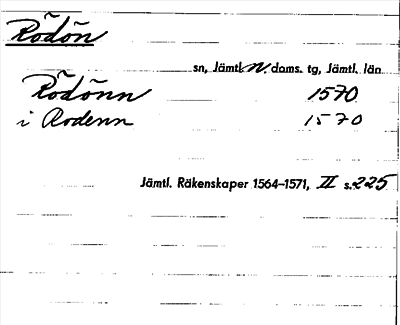 Rödön
sn, Jämtl. N. doms. tg, Jämtl. län
Rödönn 1570
i Rodenn 1570
Jämtl. Räkenskaper 1564–1571, II s. 225